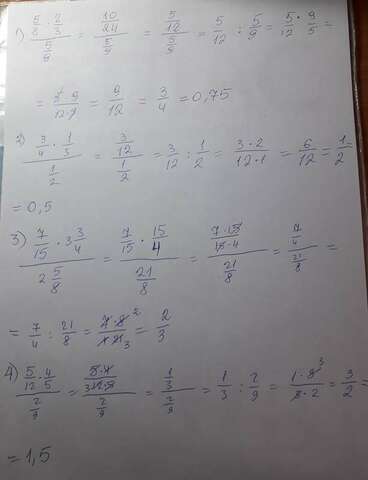 1) (5/8 · 2/3)/(5/9) = (10/24)/(5/9) = (5/12)/(5/9) = 5/12 : 5/9 = 5/12 · 9/5 =
= 9/12 = 3/4 = 0,75
2) (3/4 · 1/3)/(1/2) = (3/12)/(1/2) = 3/12 : 1/2 = (3·2)/(12·1) = 6/12 = 1/2
= 0,5
3) (7/15 · 3 3/4)/(2 5/8) = (7/15 · 15/4)/(21/8) = (7·15/15·4)/(21/8) = (7/4)/(21/8) =
= 7/4 : 21/8 = 2/3
4) (5/12 · 4/5)/(2/9) = (1/3)/(2/9) = 1/3 : 2/9 = (1·9)/(3·2) = 3/2 =
= 1,5